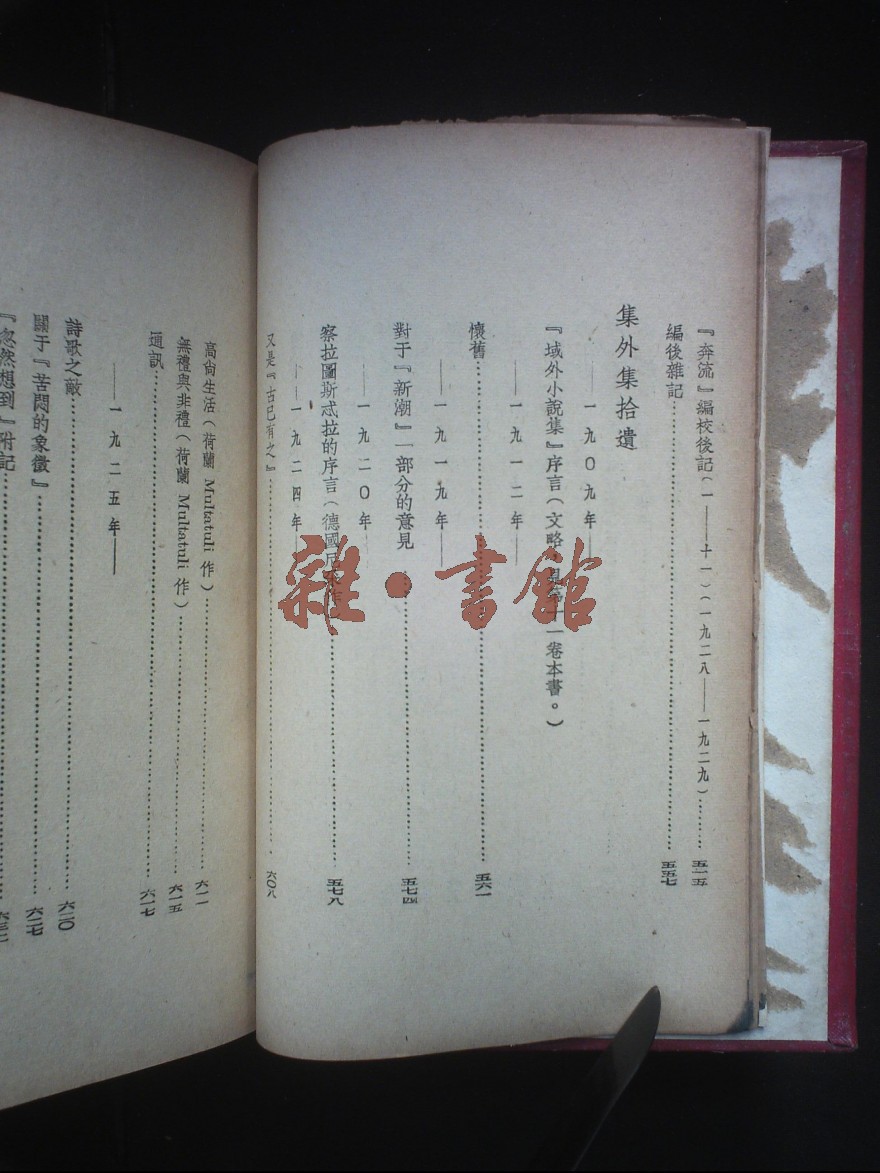 『奔流』編校後記(一——十一)(一九二八——一九二九)…………五一五
編後雜記…………五五七
集外集拾遺
——一九〇九年——
『域外小說集』序言(文略,見第十一卷本書。)
——一九一二年——
懷舊…………五六一
——一九一九年——
對于『新潮』一部分的意見…………五七四
——一九二〇年——
察拉圖斯忒拉的序言(德國尼采作…………五七八
——一九二四年——
又是『古已有之』…………六〇八
高尙生活(荷蘭 Multatuli 作)…………六一一
無禮與非禮(荷蘭 Multatuli 作)…………六一五
通訊…………六一七
——一九二五年——
詩歌之敵…………六二〇
關于『苦悶的象徵』…………六二七
『忽然想到』附記…………
雜·書館